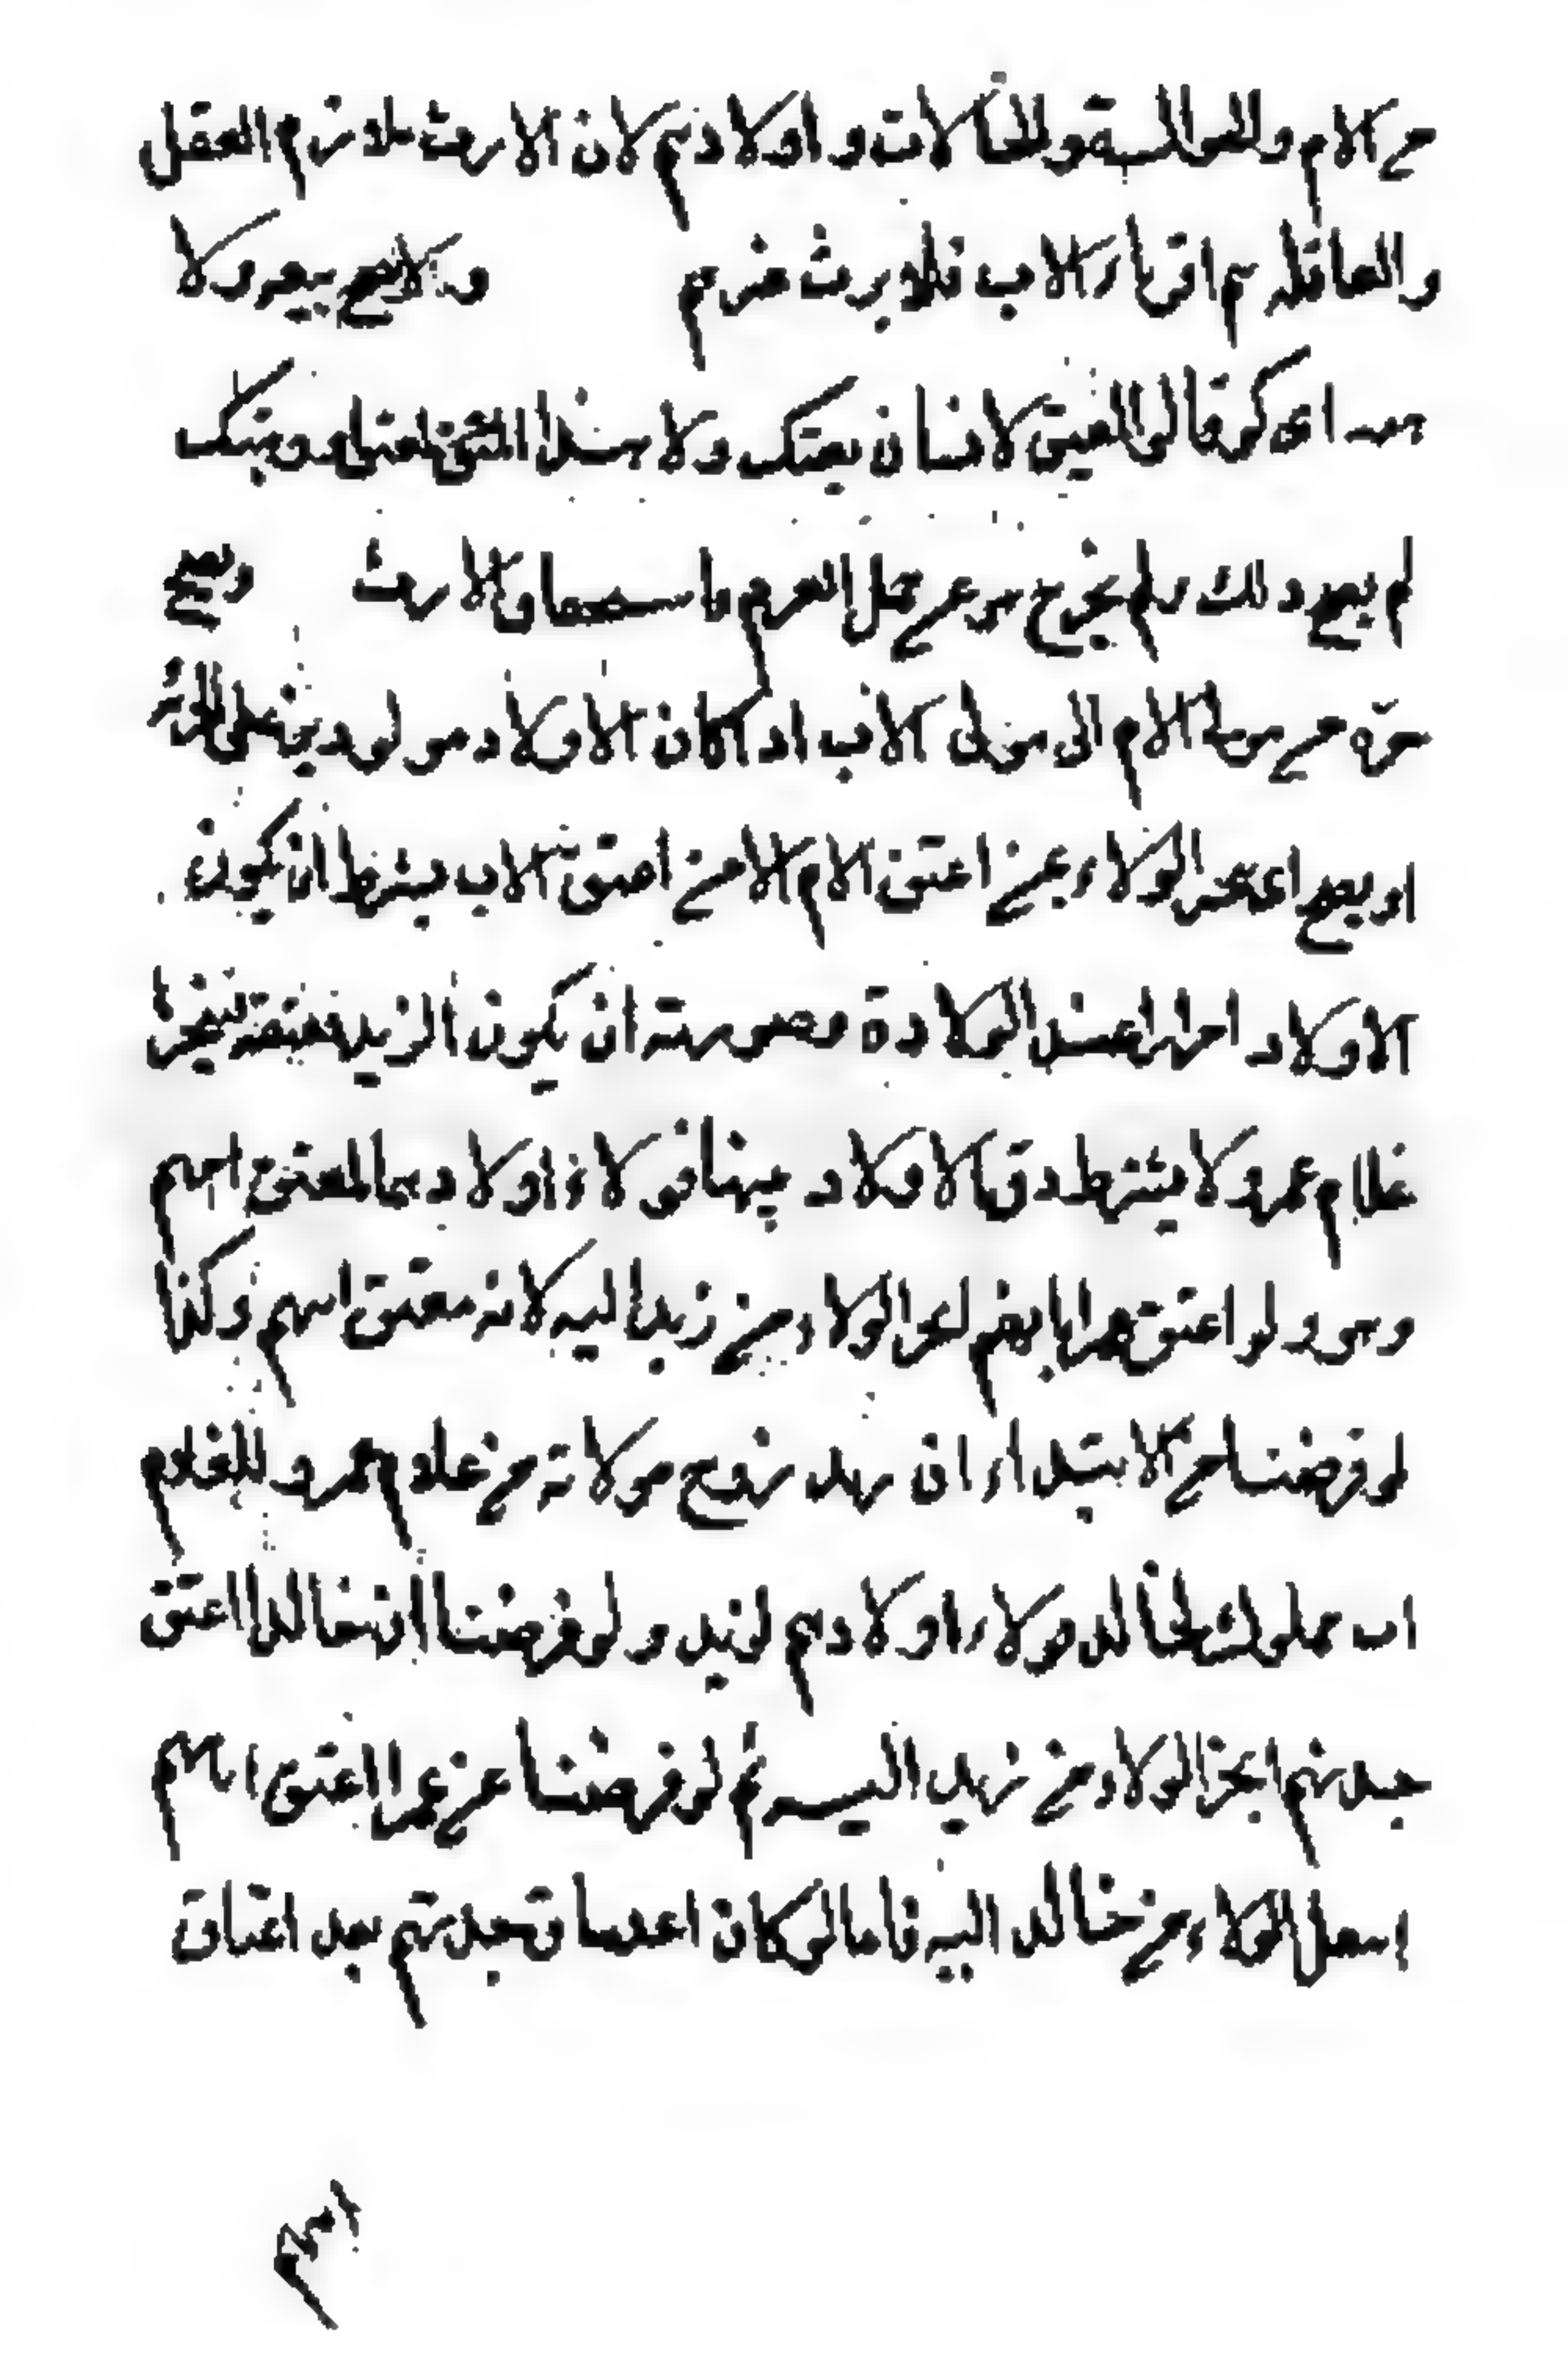 من الام والخوالسة والخالات واولادهم لان الارث ملازم العقل
والعاقلة هم اقرباء الاب فلا يرث منهم ولا يصح بيعه ولا
هبته اى لو قال المعتق لانسان بعتك ولاء هذا المعتق او وهبتك
لم يصح ذلك ولم يخرج هو عن محل العزم واستحقاق الارث ويصح
جره من مولى الام الى مولى الاب اذ كان الاولاد مولودين على الحرية
او يصح اى جر الولاء عن اعتق الام الا من اعتق الاب بشرط ان يكون
الاولاد احرارا عند الولادة وصورته ان يكون الزيد معتقة
غلام عمرو ولا يشترط رق الاولاد فولاء اولادهما لمعتق امهم
وهو ولو اعتق عمرا باهم انجر الولاء من زيد اليه لانه معتق ابيهم وكذا
لو فرضنا من الابتداء ان زيد زوج مولاته من غلام عمرو وللغلام
اب مملوك لخالد فولاء اولادهم لزيد ولو فرضنا ان خالدا اعتق
جدهم انجر الولاء من زيد اليه ثم لو فرضنا عن عمرا اعتق اباهم
انتقل الولاء من خالد اليه فاما لو كان اعتاق جدهم بعد اعتاق
ابيهم